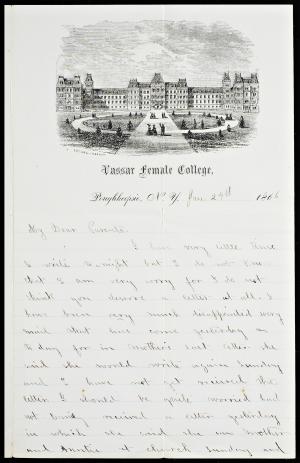 Vassar Female College,
Poughkeepsie, N.Y. Jan 24th 1866
My Dear Parents.
I have very little time
to write to-night but I do not know
that I am very sorry for I do not
think you deserve a letter at all. I
have been very much disappointed every
mail that has come yesterday or
to day for in Mother's last letter she
said she would write again Sunday
and I have not yet received the
letter I should be quite worried had
not received a letter yesterday
in which she said she saw Mother
and Auntie at church Sunday and